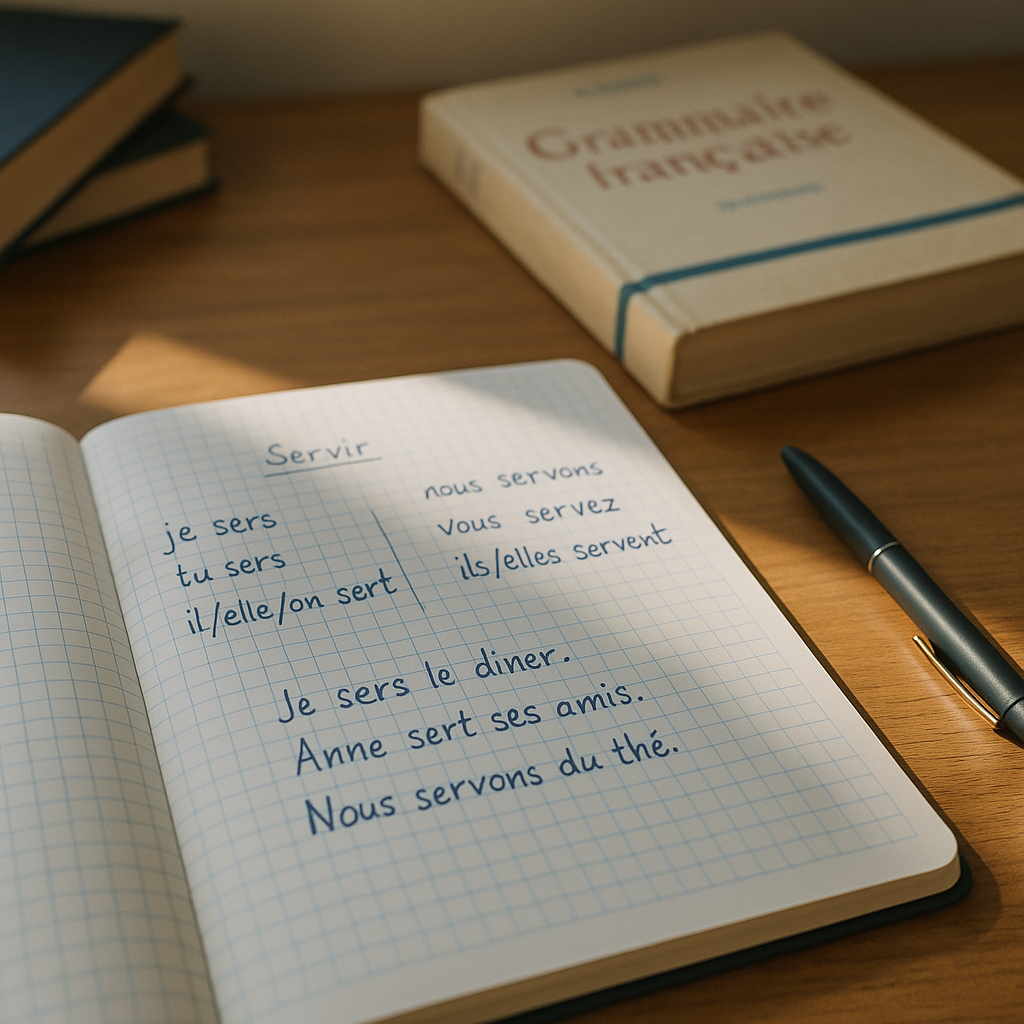 Grammaire
française
Servir
je sers
tu sers
il/elle/on sert
nous servons
vous servez
ils/elles servent
Je sers le diner.
Anne sert ses amis.
Nous servons du thé.